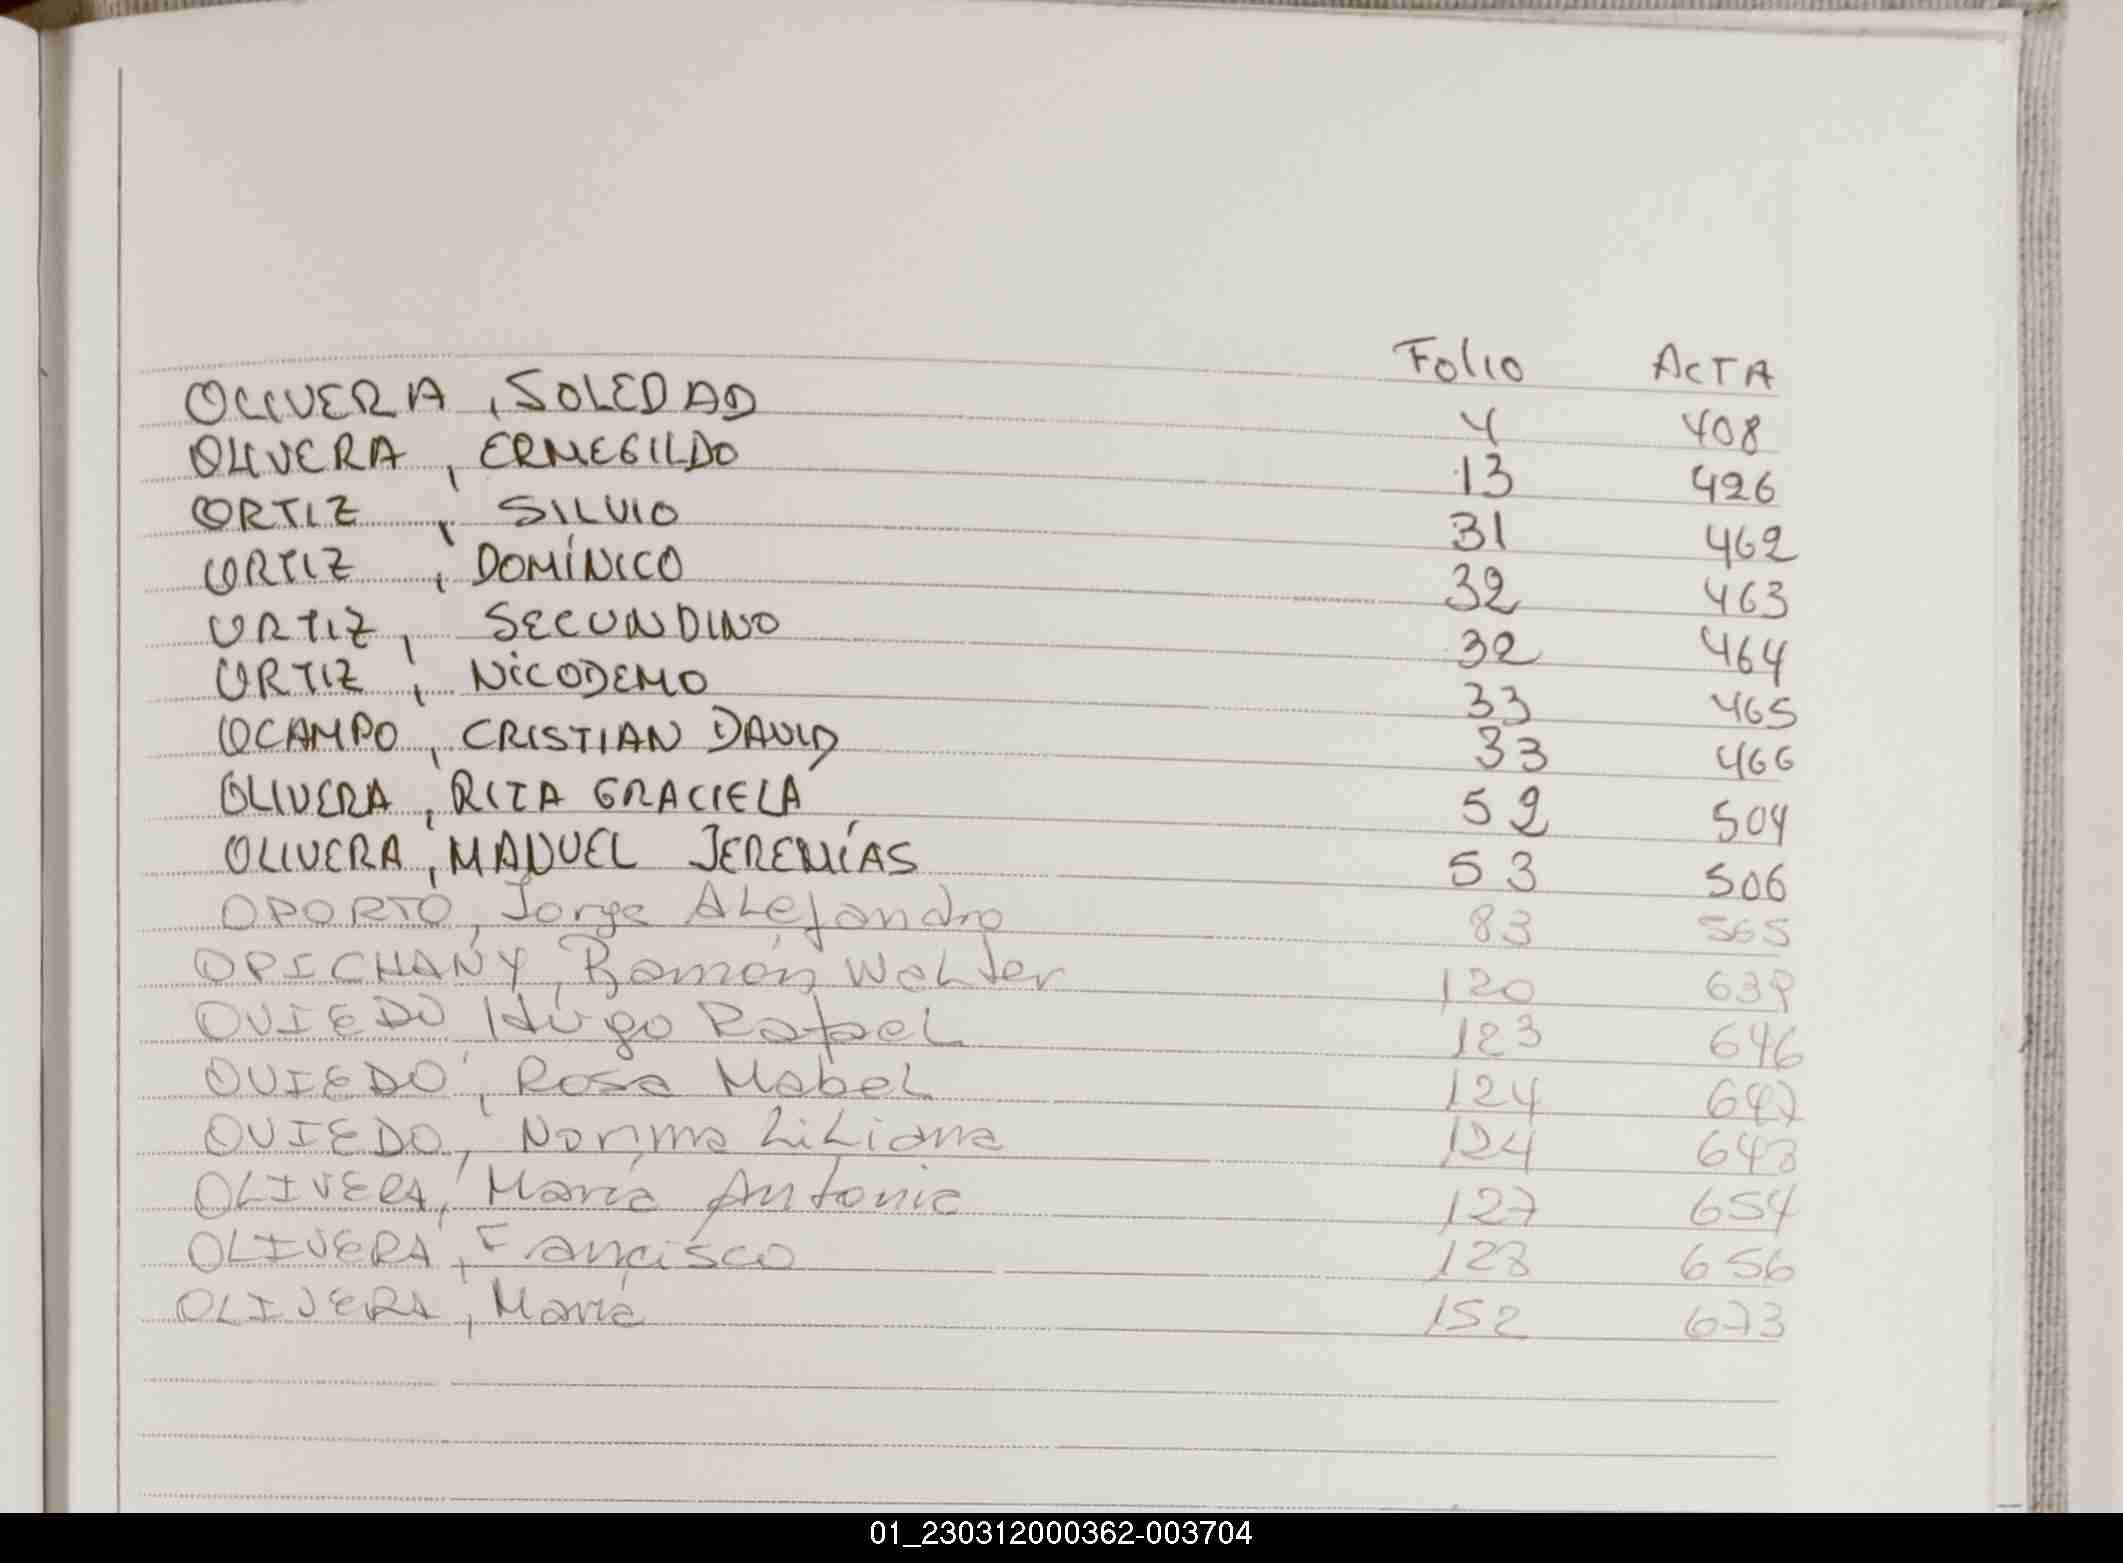 Folio ACTA
OLIVERA, SOLEDAD 4 408
OLIVERA, ERMEGILDO 13 426
ORTIZ, SILVIO 31 462
ORTIZ, DOMÍNICO 32 463
ORTIZ, SECUNDINO 32 464
ORTIZ, NICODEMO 33 465
OCAMPO, CRISTIAN DAVID 33 466
OLIVERA, RITA GRACIELA 52 504
OLIVERA, MANUEL JEREMÍAS 53 506
OPORTO, Jorge ALejandro 83 565
OPICHANY, Ramón WaLter 120 639
OVIEDO Hugo RafaeL 123 646
OVIEDO, Rosa MabeL 124 647
OVIEDO, Norma LiLiana 124 648
OLIVERA, María Antonia 127 654
OLIVERA, Francisco 128 656
OLIVERA, María 152 673
01_230312000362-003704